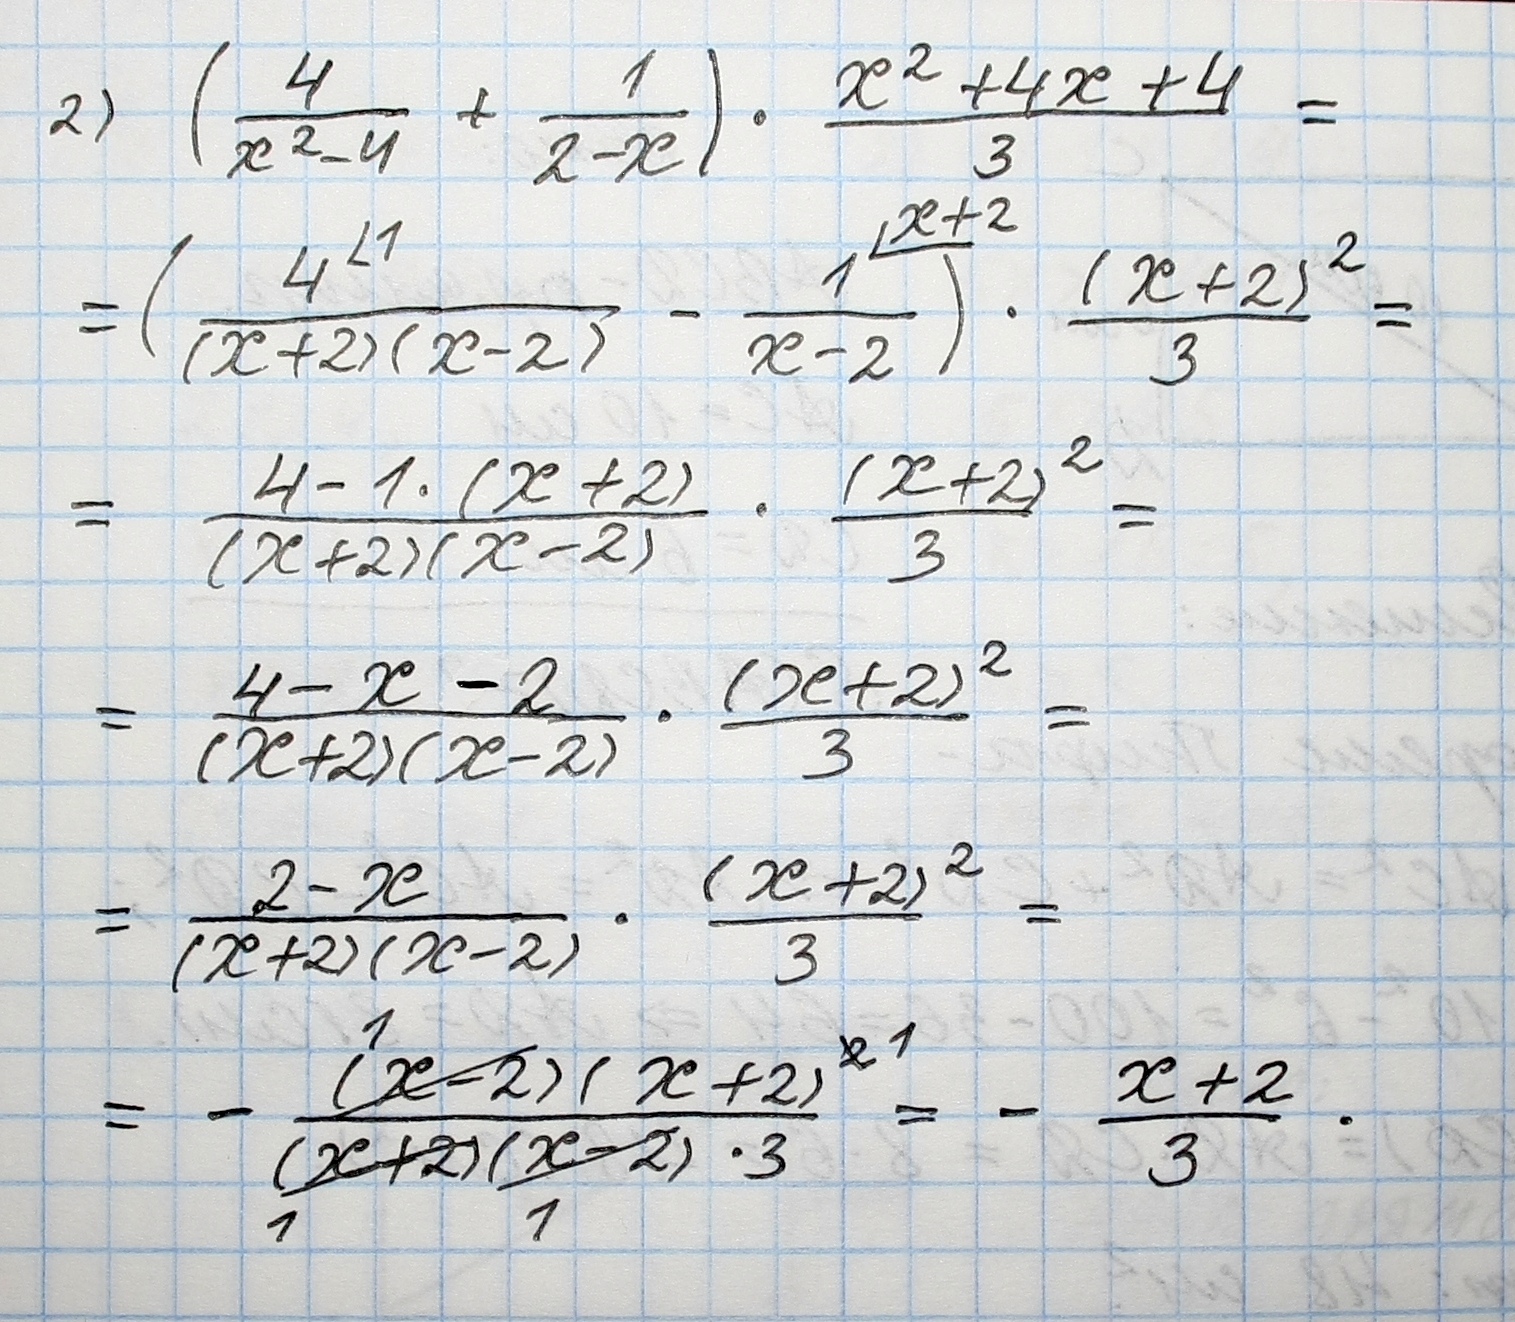 2) (4/(x²-4) + 1/(2-x)) · (x²+4x+4)/3 =
= (4^{∠1}/((x+2)(x-2)) - 1^{∠x+2}/(x-2)) · (x+2)²/3 =
= (4-1·(x+2))/((x+2)(x-2)) · (x+2)²/3 =
= (4-x-2)/((x+2)(x-2)) · (x+2)²/3 =
= (2-x)/((x+2)(x-2)) · (x+2)²/3 =
= - (x-2)¹(x+2)²¹/((x+2)₁(x-2)₁·3) = - (x+2)/3 .